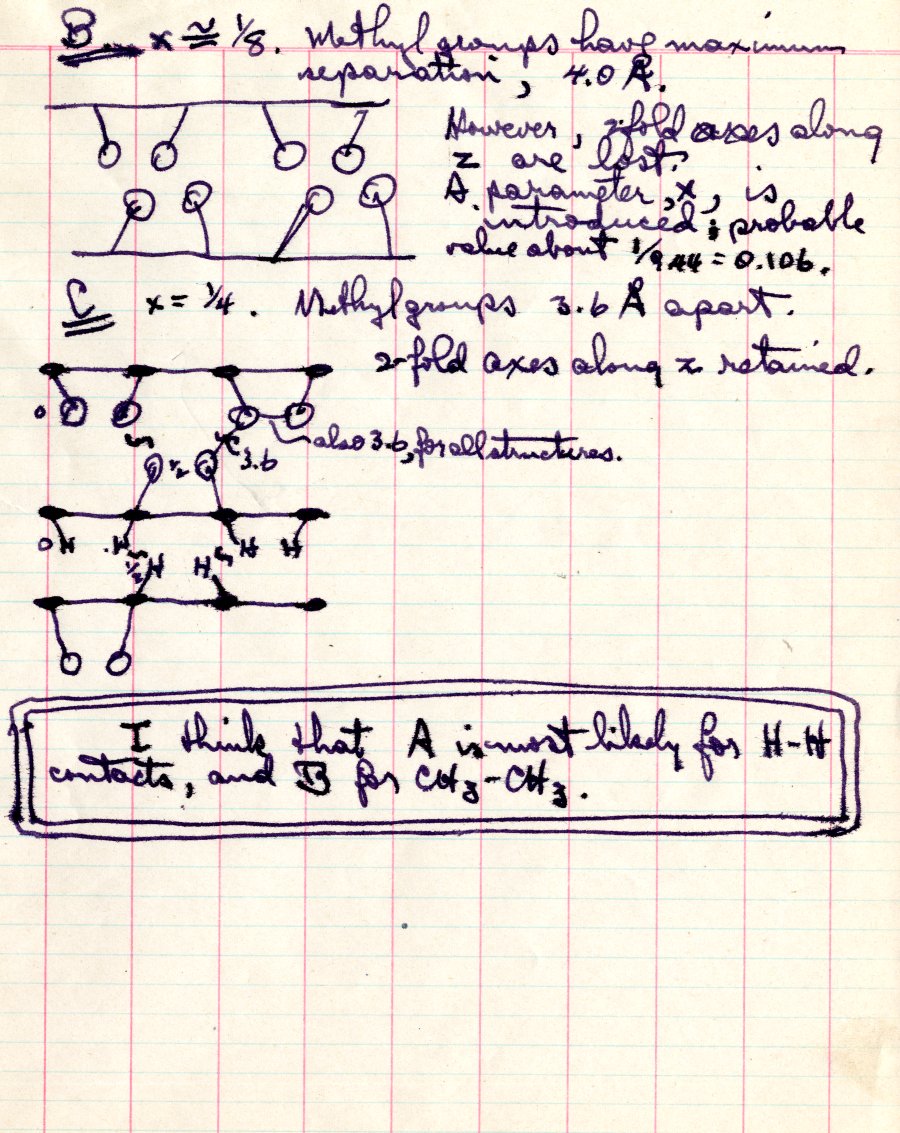 B. x ≅ 1/8. Methyl groups have maximum
separation, 4.0 Å.
However, 2-fold axes along
z are lost.
A parameter, x, is
introduced; probable
value about 1/9.44 = 0.106.
C x = 1/4. Methyl groups 3.6 Å apart.
2-fold axes along z retained.
0
also 3.6, for all structures.
1/2 3.6
0 H H H H
1/2 H H
I think that A is most likely for H-H
contacts, and B for CH3-CH3.